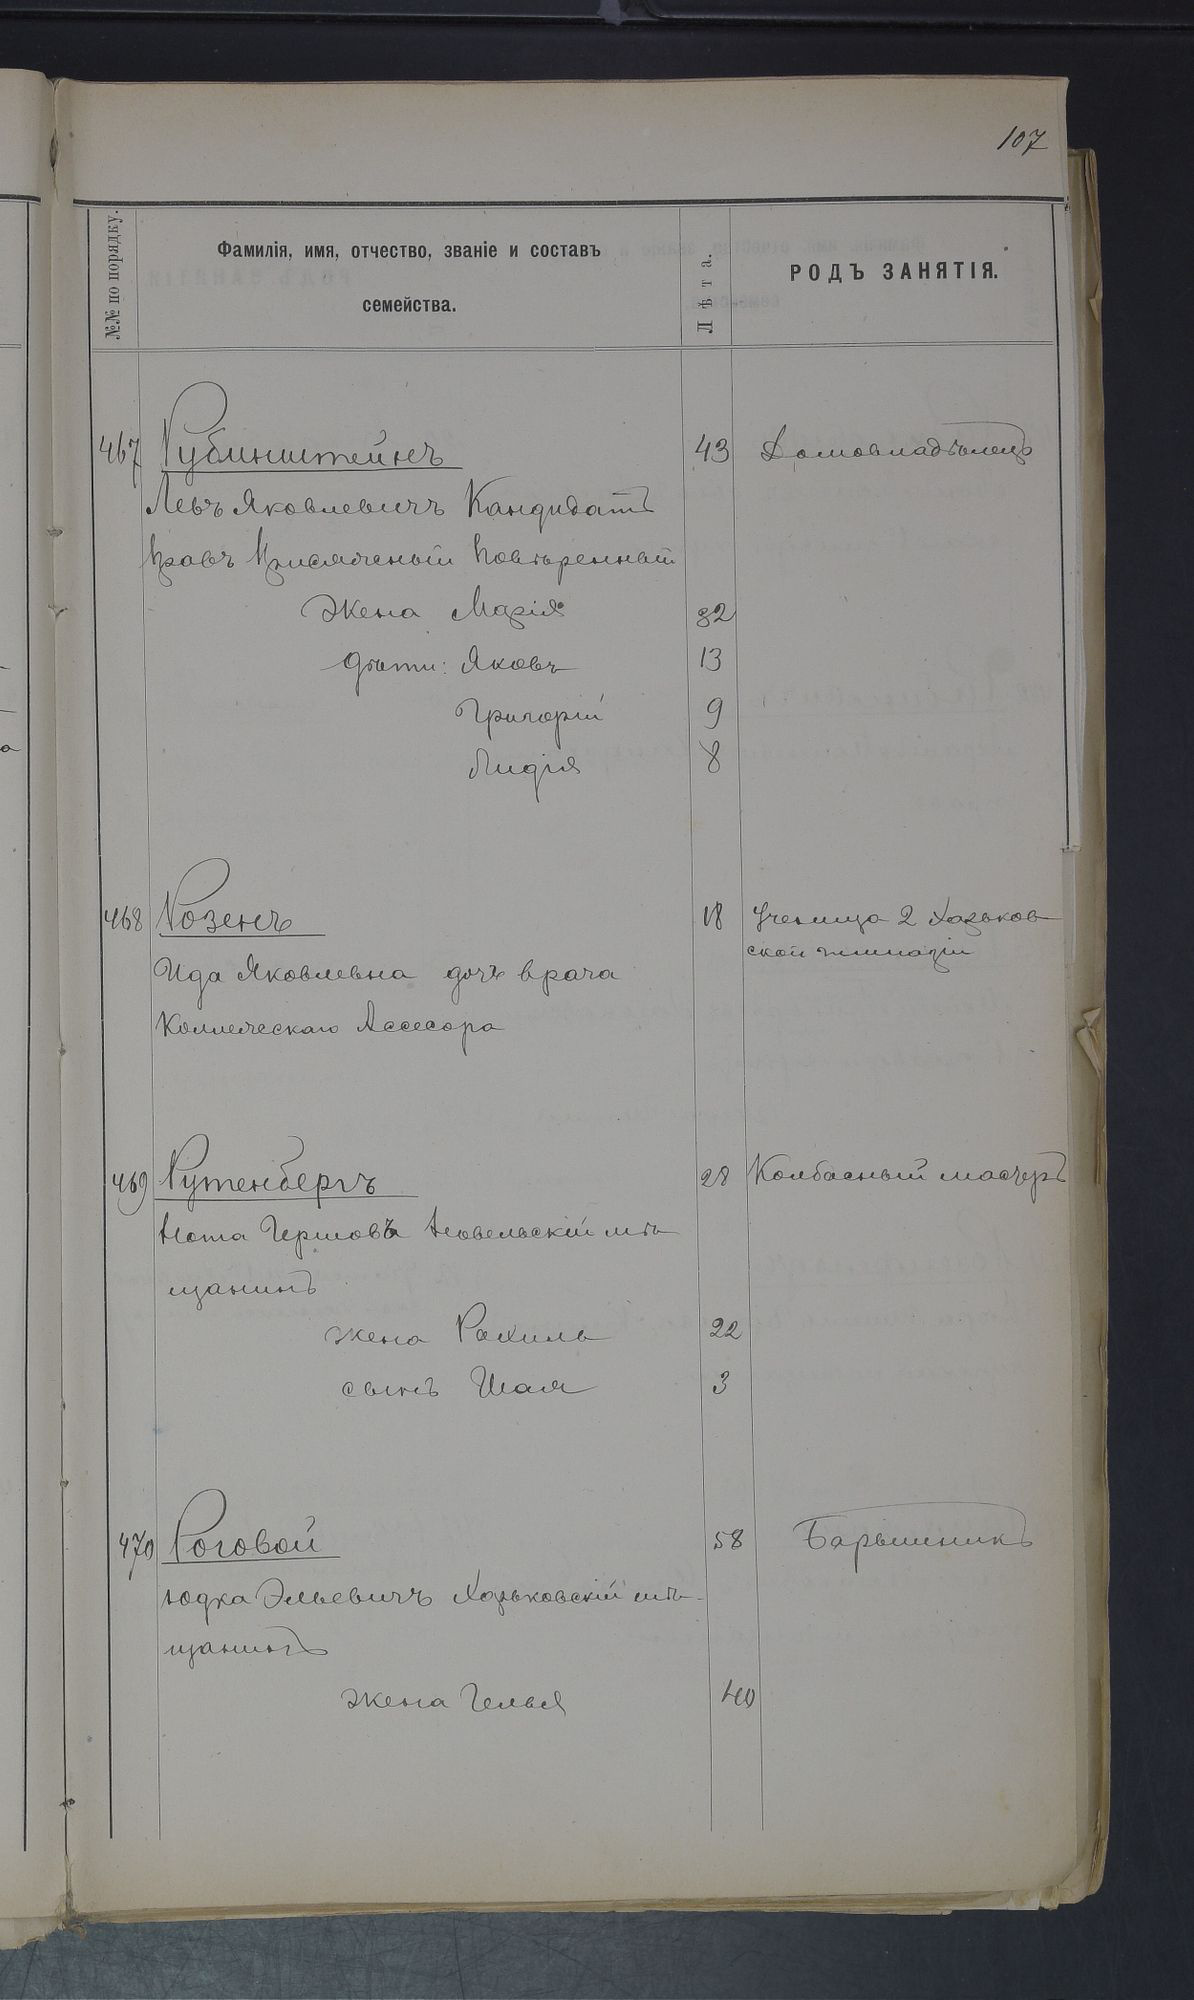 107
№№ по порядку.
Фамилія, имя, отчество, званіе и составъ
семейства.
Лѣта.
РОДЪ ЗАНЯТІЯ.
467 Рубинштейнъ 43 Домовладѣлецъ
Левъ Яковлевичъ Кандидатъ
правъ Присяжный Повѣренный
Жена Марія 32
дѣти: Яковъ 13
Григорій 9
Лидія 8
468 Розенъ 18 Ученица 2 Харьков-
ской гимназіи
Ида Яковлевна дочь врача
Коллежскаго Ассесора
469 Рутенбергъ 28 Колбасный мастеръ
Нота Гершовъ Невельскій мѣ-
щанинъ
жена Рахиль 22
сынъ Шая 3
470 Роговой 58 Барышникъ
Юдка Эльевичъ Харьковскій мѣ-
щанинъ
жена Гелья 40